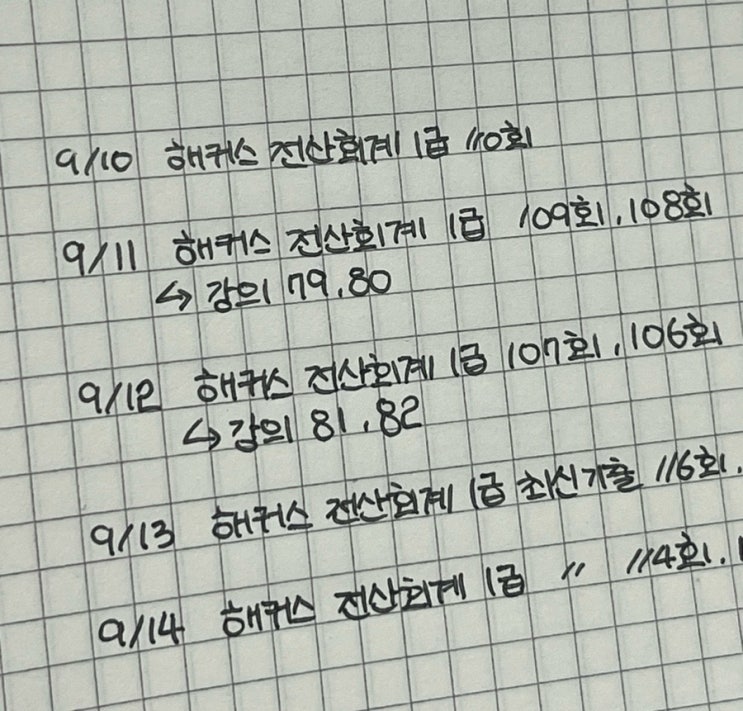 9/10 해커스 전산회계 1급 110회
9/11 해커스 전산회계 1급 109회, 108회
↳ 강의 79, 80
9/12 해커스 전산회계 1급 107회, 106회
↳ 강의 81, 82
9/13 해커스 전산회계 1급 최신기출 116회,
9/14 해커스 전산회계 1급 〃 114회,